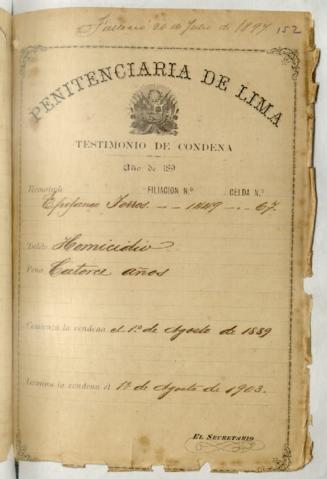 Falleció 26 de Julio de 1897 152
PENITENCIARIA DE LIMA
TESTIMONIO DE CONDENA
Año de 189
Rematado FILIACION N.º CELDA N.º
Torros - - 1449 - - 67.
Delito Homicidio
Pena Catorce años
Comienza la condena el 1º de Agosto de 1889
Termina la condena el 1º de Agosto de 1903.
EL SECRETARIO